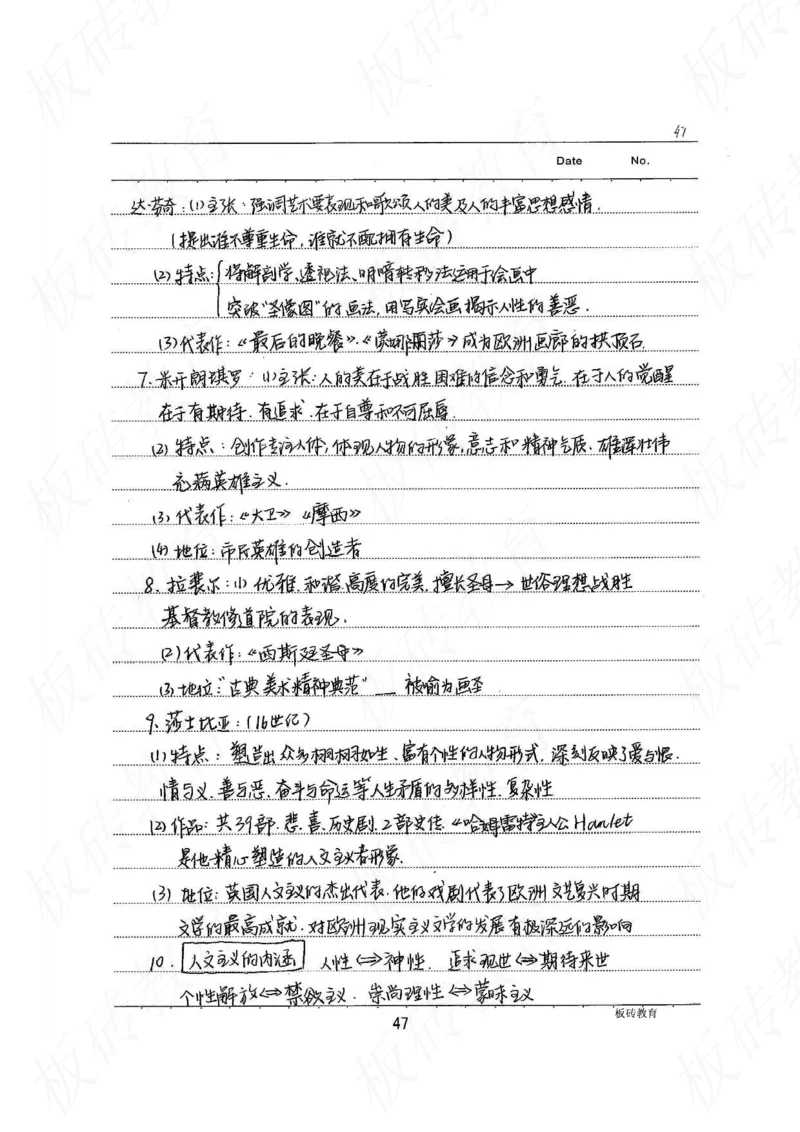 47
Date No.
达·芬奇：(1)主张：强调艺术要表现和歌颂人的美及人的丰富思想感情.
(提出谁不尊重生命，谁就不配拥有生命)
(2)特点：将解剖学、透视法、明暗转移法运用于绘画中
突破"圣像图"的画法，用写实绘画揭示人性的善恶.
(3)代表作：《最后的晚餐》.《蒙娜丽莎》成为欧洲画廊的拱顶石.
7.米开朗琪罗：(1)主张：人的美在于战胜困难的信念和勇气.在于人的觉醒
在于有期待.有追求.在于自尊和不可屈辱.
(2)特点：创作专注人体，体现人物的形象，意志和精神气质.雄浑壮伟
充满英雄主义.
(3)代表作：《大卫》《摩西》
(4)地位：市民英雄的创造者
8.拉斐尔：(1)优雅.和谐.高度的完美.擅长圣母→世俗理想战胜
基督教修道院的表现.
(2)代表作：《西斯廷圣母》
(3)地位："古典美术精神典范"__被喻为画圣
9.莎士比亚：(16世纪)
(1)特点：塑造出众多栩栩如生、富有个性的人物形式，深刻反映了爱与恨.
情与义.善与恶.奋斗与命运等人生矛盾的多样性.复杂性
(2)作品：共39部.悲.喜.历史剧.2部史诗.《哈姆雷特主人公Hamlet
是他精心塑造的人文主义者形象.
(3)地位：英国人文主义的杰出代表.他的戏剧代表了欧洲文艺复兴时期
文学的最高成就.对欧洲现实主义文学的发展有极深远的影响
10.人文主义的内涵 人性⇔神性. 追求现世⇔期待来世
个性解放⇔禁欲主义.崇尚理性⇔蒙昧主义
板砖教育
47